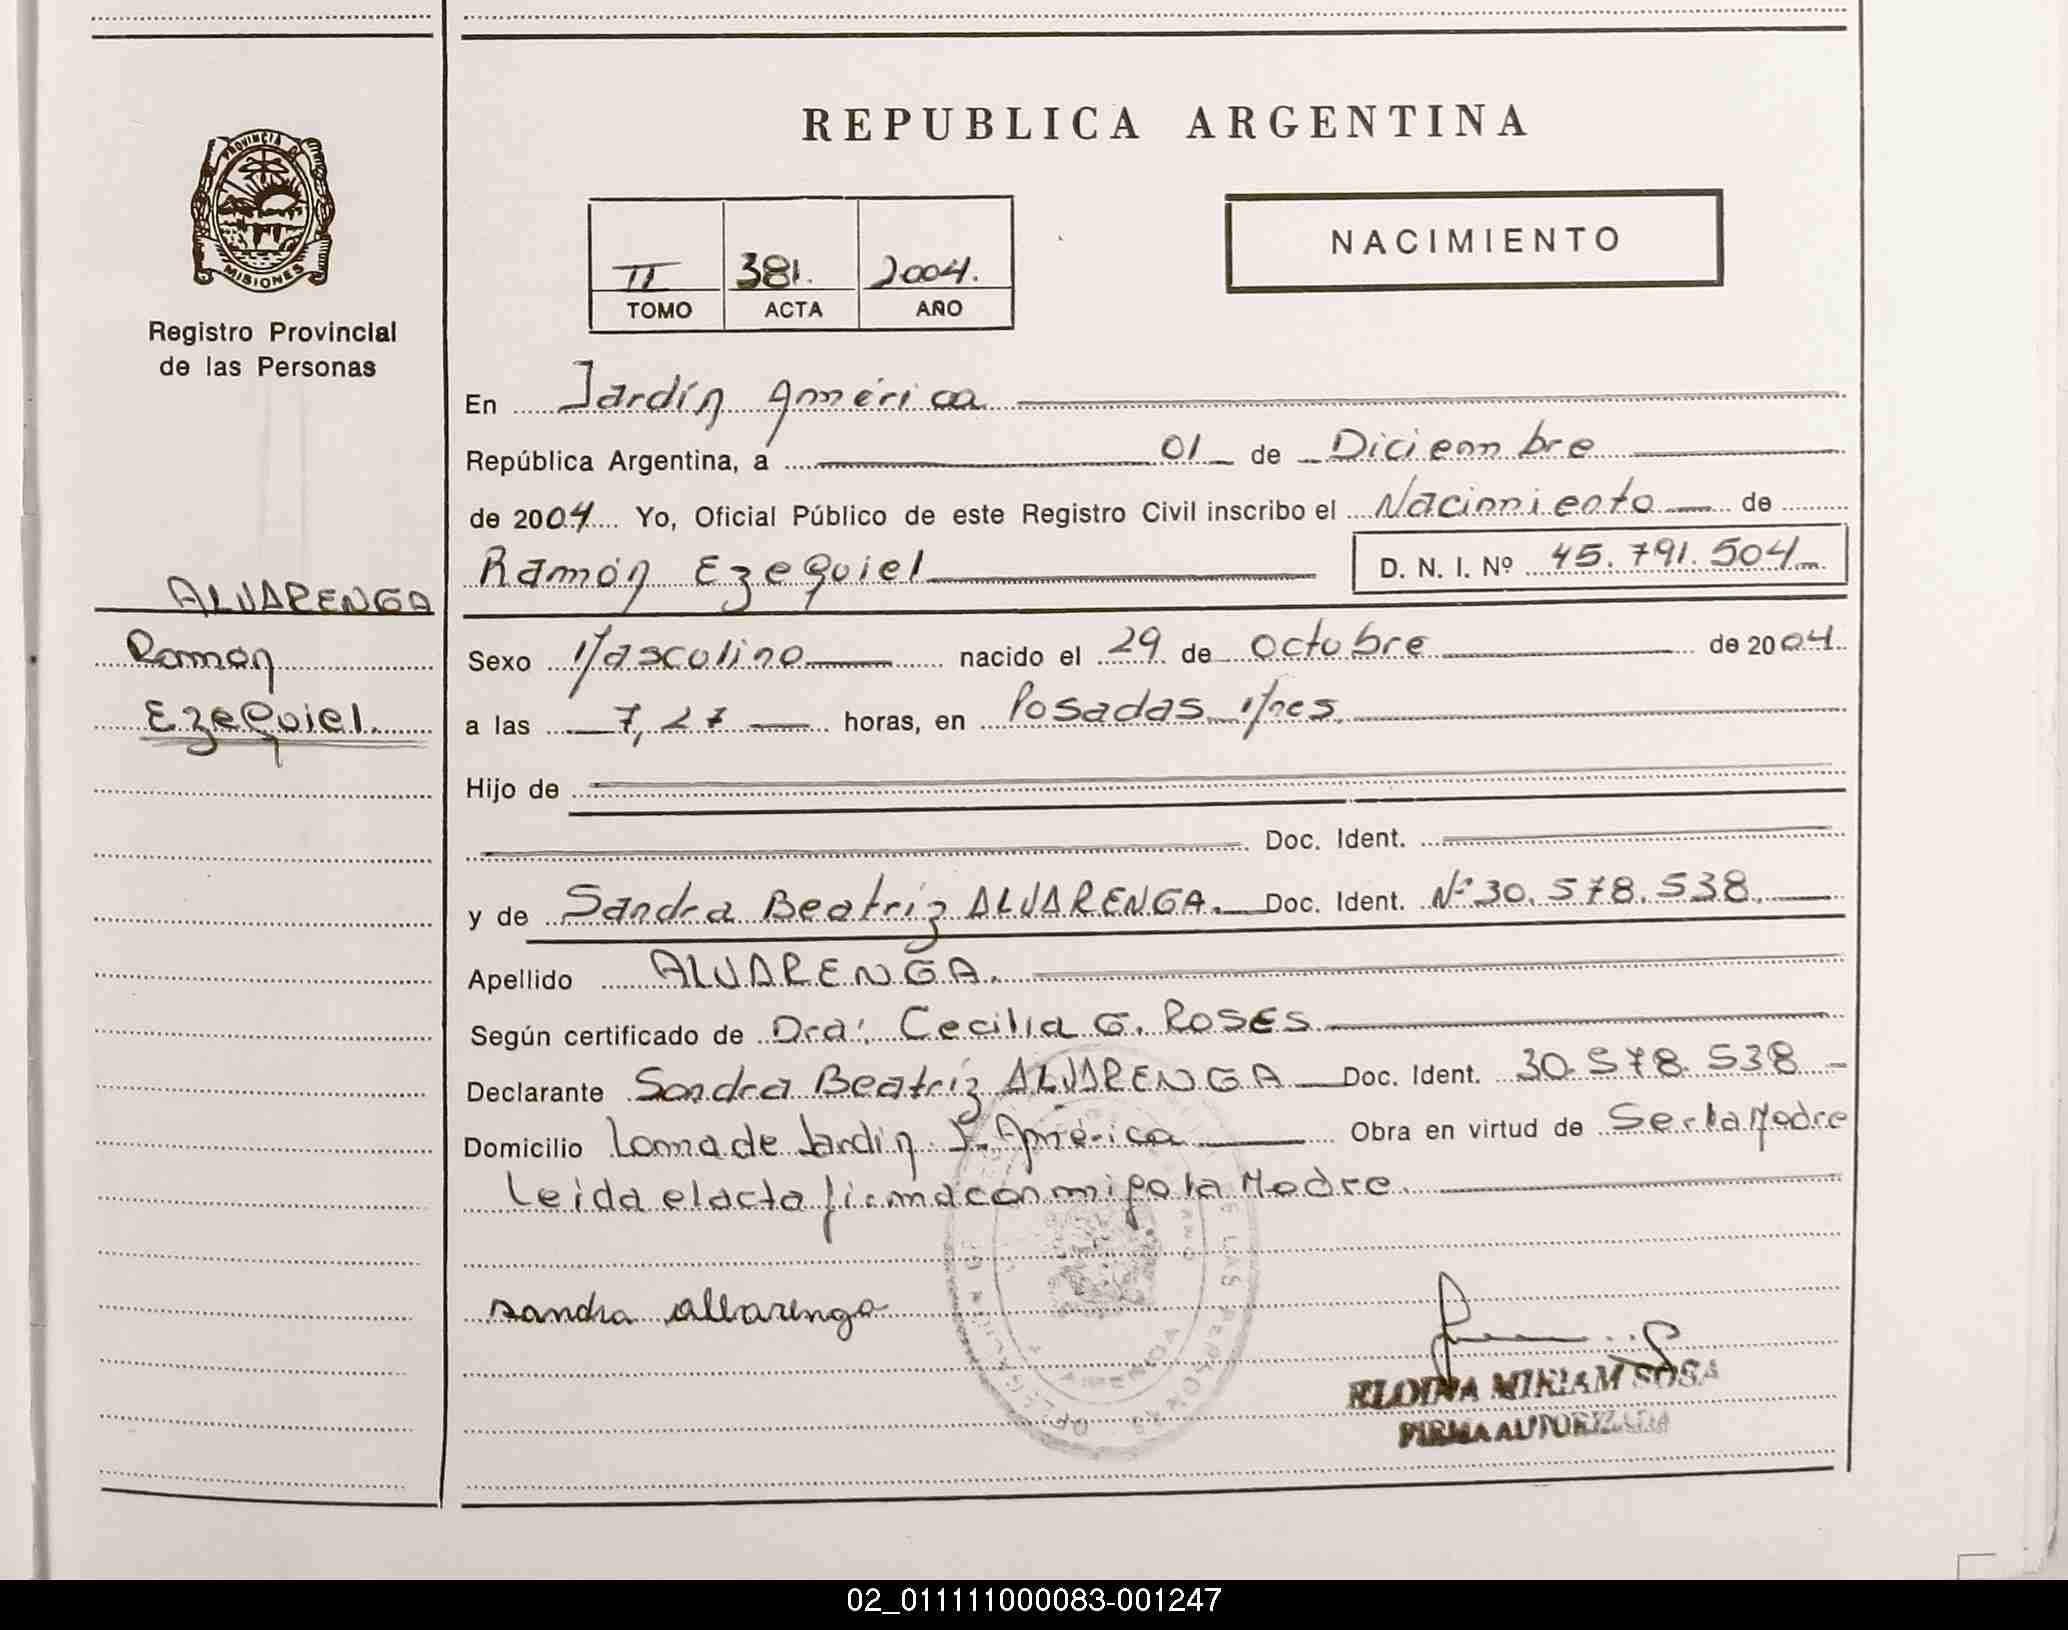 REPUBLICA ARGENTINA
PROVINCIA DE
MISIONES
Registro Provincial
de las Personas
II 381. 2004.
TOMO ACTA AÑO
NACIMIENTO
En Jardín América
República Argentina, a 01 de Diciembre
de 2004 Yo, Oficial Público de este Registro Civil inscribo el Nacimiento de
Ramón Ezequiel D. N. I. Nº 45.791.504
ALVARENGA
Ramón
Ezequiel
Sexo Masculino nacido el 29 de octubre de 2004
a las 7,27 horas, en Posadas Mnes
Hijo de
Doc. Ident.
y de Sandra Beatriz ALVARENGA. Doc. Ident. Nº 30.578.538.
Apellido ALVARENGA.
Según certificado de Dra: Cecilia G. ROSES
Declarante Sandra Beatriz ALVARENGA Doc. Ident. 30.578.538
Domicilio Loma de Jardín J. América Obra en virtud de Ser la Madre
Leida el acta firma conmigo la Madre.
sandra allvarenga
DE LAS PERSONAS
MIRIAM SOSA
FIRMA AUTORIZADA
02_011111000083-001247